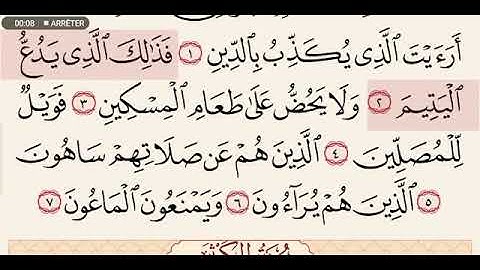 00:08 ■ ARRÊTER
أَرَءَيْتَ ٱلَّذِى يُكَذِّبُ بِٱلدِّينِ ١ فَذَٰلِكَ ٱلَّذِى يَدُعُّ
ٱلْيَتِيمَ ٢ وَلَا يَحُضُّ عَلَىٰ طَعَامِ ٱلْمِسْكِينِ ٣ فَوَيْلٌ
لِّلْمُصَلِّينَ ٤ ٱلَّذِينَ هُمْ عَن صَلَاتِهِمْ سَاهُونَ
٥ ٱلَّذِينَ هُمْ يُرَآءُونَ ٦ وَيَمْنَعُونَ ٱلْمَاعُونَ ٧